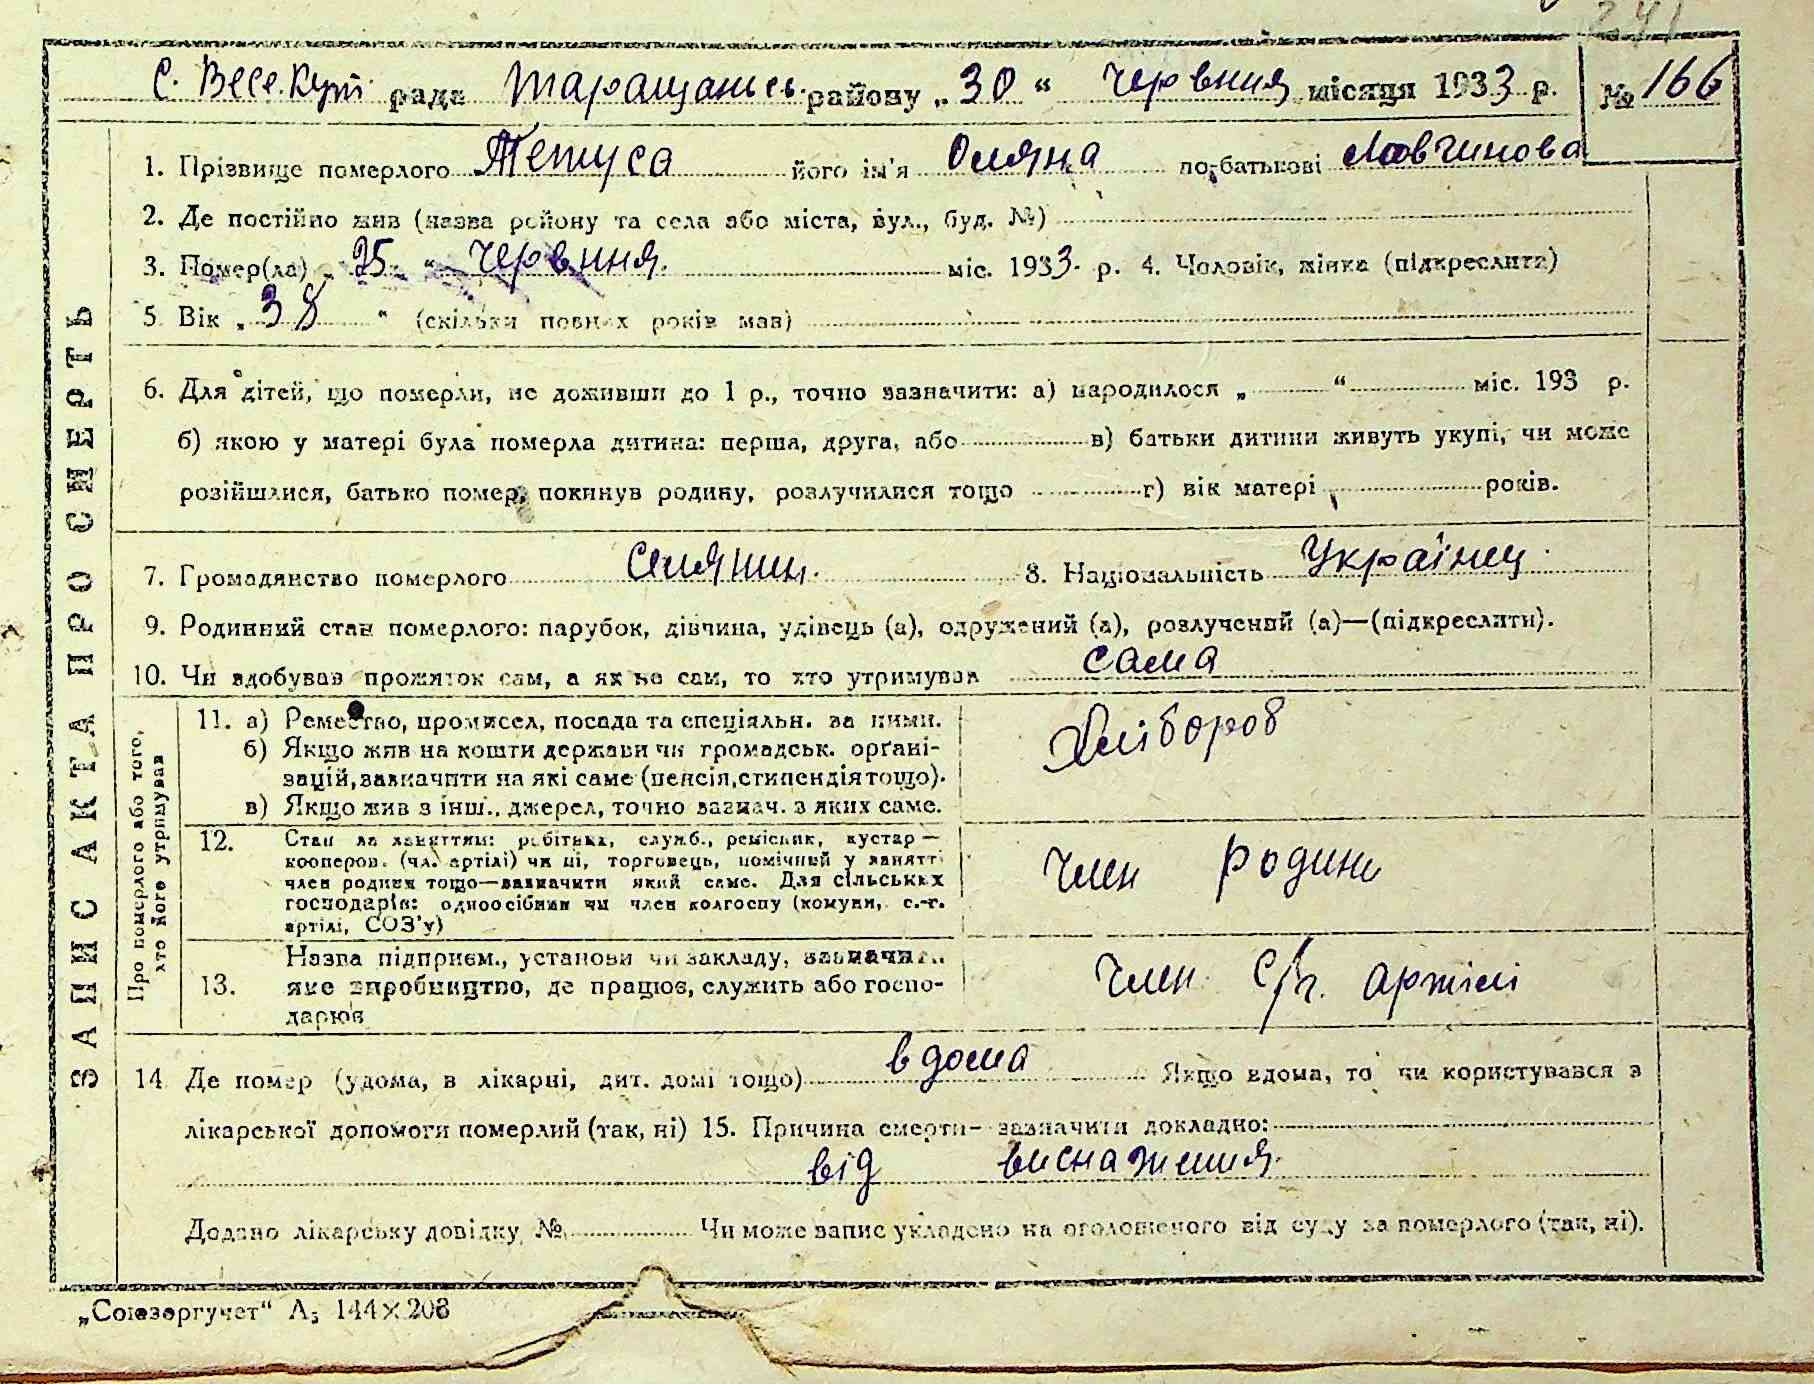 241
с. Весе. Кут рада Таращансь. району „30“ Червння місяця 1933 р. № 166
1. Прізвище померлого Тетуса його ім'я Оляна по-батькові
2. Де постійно жив (назва району та села або міста, вул., буд. №)
3. Помер(ла) „25“ Червння. міс. 1933 р. 4. Чоловік, жінка (підкреслити)
5. Вік „38“ (скільки повних років мав)
6. Для дітей, що померли, не доживши до 1 р., точно зазначити: а) народилося „ “ міс. 193 р.
б) якою у матері була померла дитина: перша, друга, або в) батьки дитини живуть укупі, чи може
розійшлися, батько помер, покинув родину, розлучилися тощо г) вік матері років.
7. Громадянство померлого Селянин. 8. Національність Українец
9. Родинний стан померлого: парубок, дівчина, удівець (а), одружений (а), розлучений (а)—(підкреслити).
10. Чи здобував прожиток сам, а як не сам, то хто утримував сама
ЗАПИС АКТА ПРО СМЕРТЬ
Про померлого або того,
хто його утримував
11. а) Ремество, промисел, посада та спеціяльн. за ними.
б) Якщо жив на кошти держави чи громадськ. орґані-
зацій, зазначити на які саме (пенсія, стипендія тощо).
в) Якщо жив з інш. джерел, точно зазнач. з яких саме.
Хлібороб
12. Стан за заняттям: робітник, служб., ремісник, кустар —
кооперов. (чл. артілі) чи ні, торговець, помічний у занятті
член родини тощо—зазначити який саме. Для сільських
господарів: одноосібник чи член колгоспу (комуни, с.-г.
артілі, СОЗ'у)
Член родини
13. Назва підприєм., установи чи закладу, зазначити
яке виробництво, де працює, служить або госпо-
дарює
Член с/г. артілі
14. Де помер (удома, в лікарні, дит. домі тощо) в дома Якщо вдома, то чи користувався з
лікарської допомоги померлий (так, ні) 15. Причина смерти - зазначити докладно:
від виснаження.
Додано лікарську довідку № Чи може запис укладено на оголошеного від суду за померлого (так, ні).
„Союзоргучет“ А5 144×208